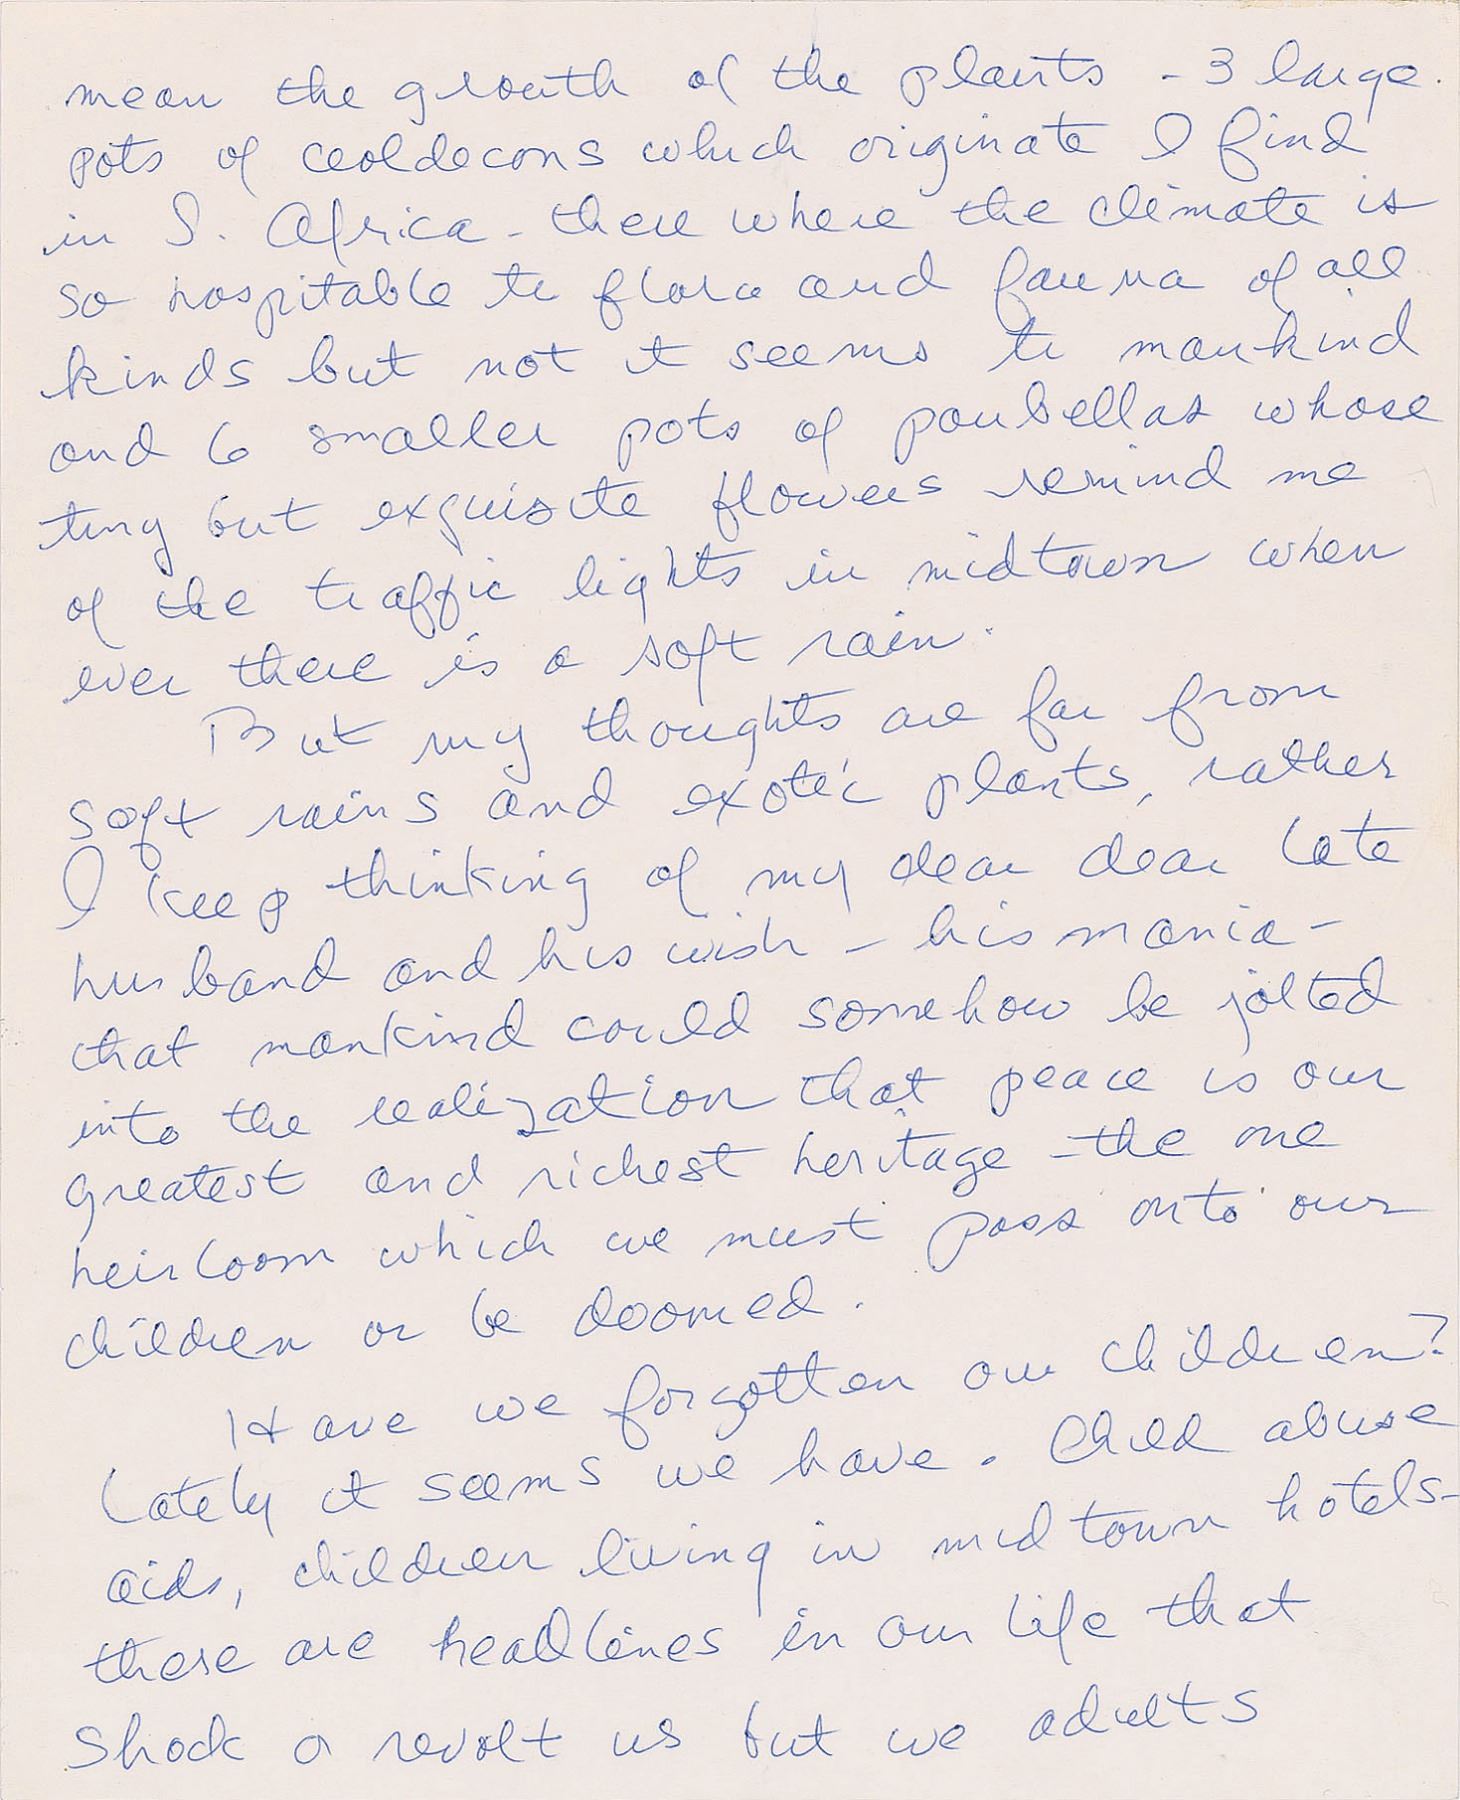 mean the growth of the plants - 3 large
pots of ceoldecons which originate I find
in S. Africa - there where the climate is
so hospitable to flora and fauna of all
kinds but not it seems to mankind
and 6 smaller pots of poubellas whose
tiny but exquisite flowers remind me
of the traffic lights in midtown when
ever there is a soft rain.
But my thoughts are far from
soft rains and exotic plants, rather
I keep thinking of my dear dear late
husband and his wish - his mania -
that mankind could somehow be jolted
into the realization that peace is our
greatest and richest heritage - the one
heirloom which we must pass onto our
children or be doomed.
Have we forgotten our children?
Lately it seems we have. Child abuse
aids, children living in midtown hotels -
these are headlines in our life that
shock a revolt us but we adults